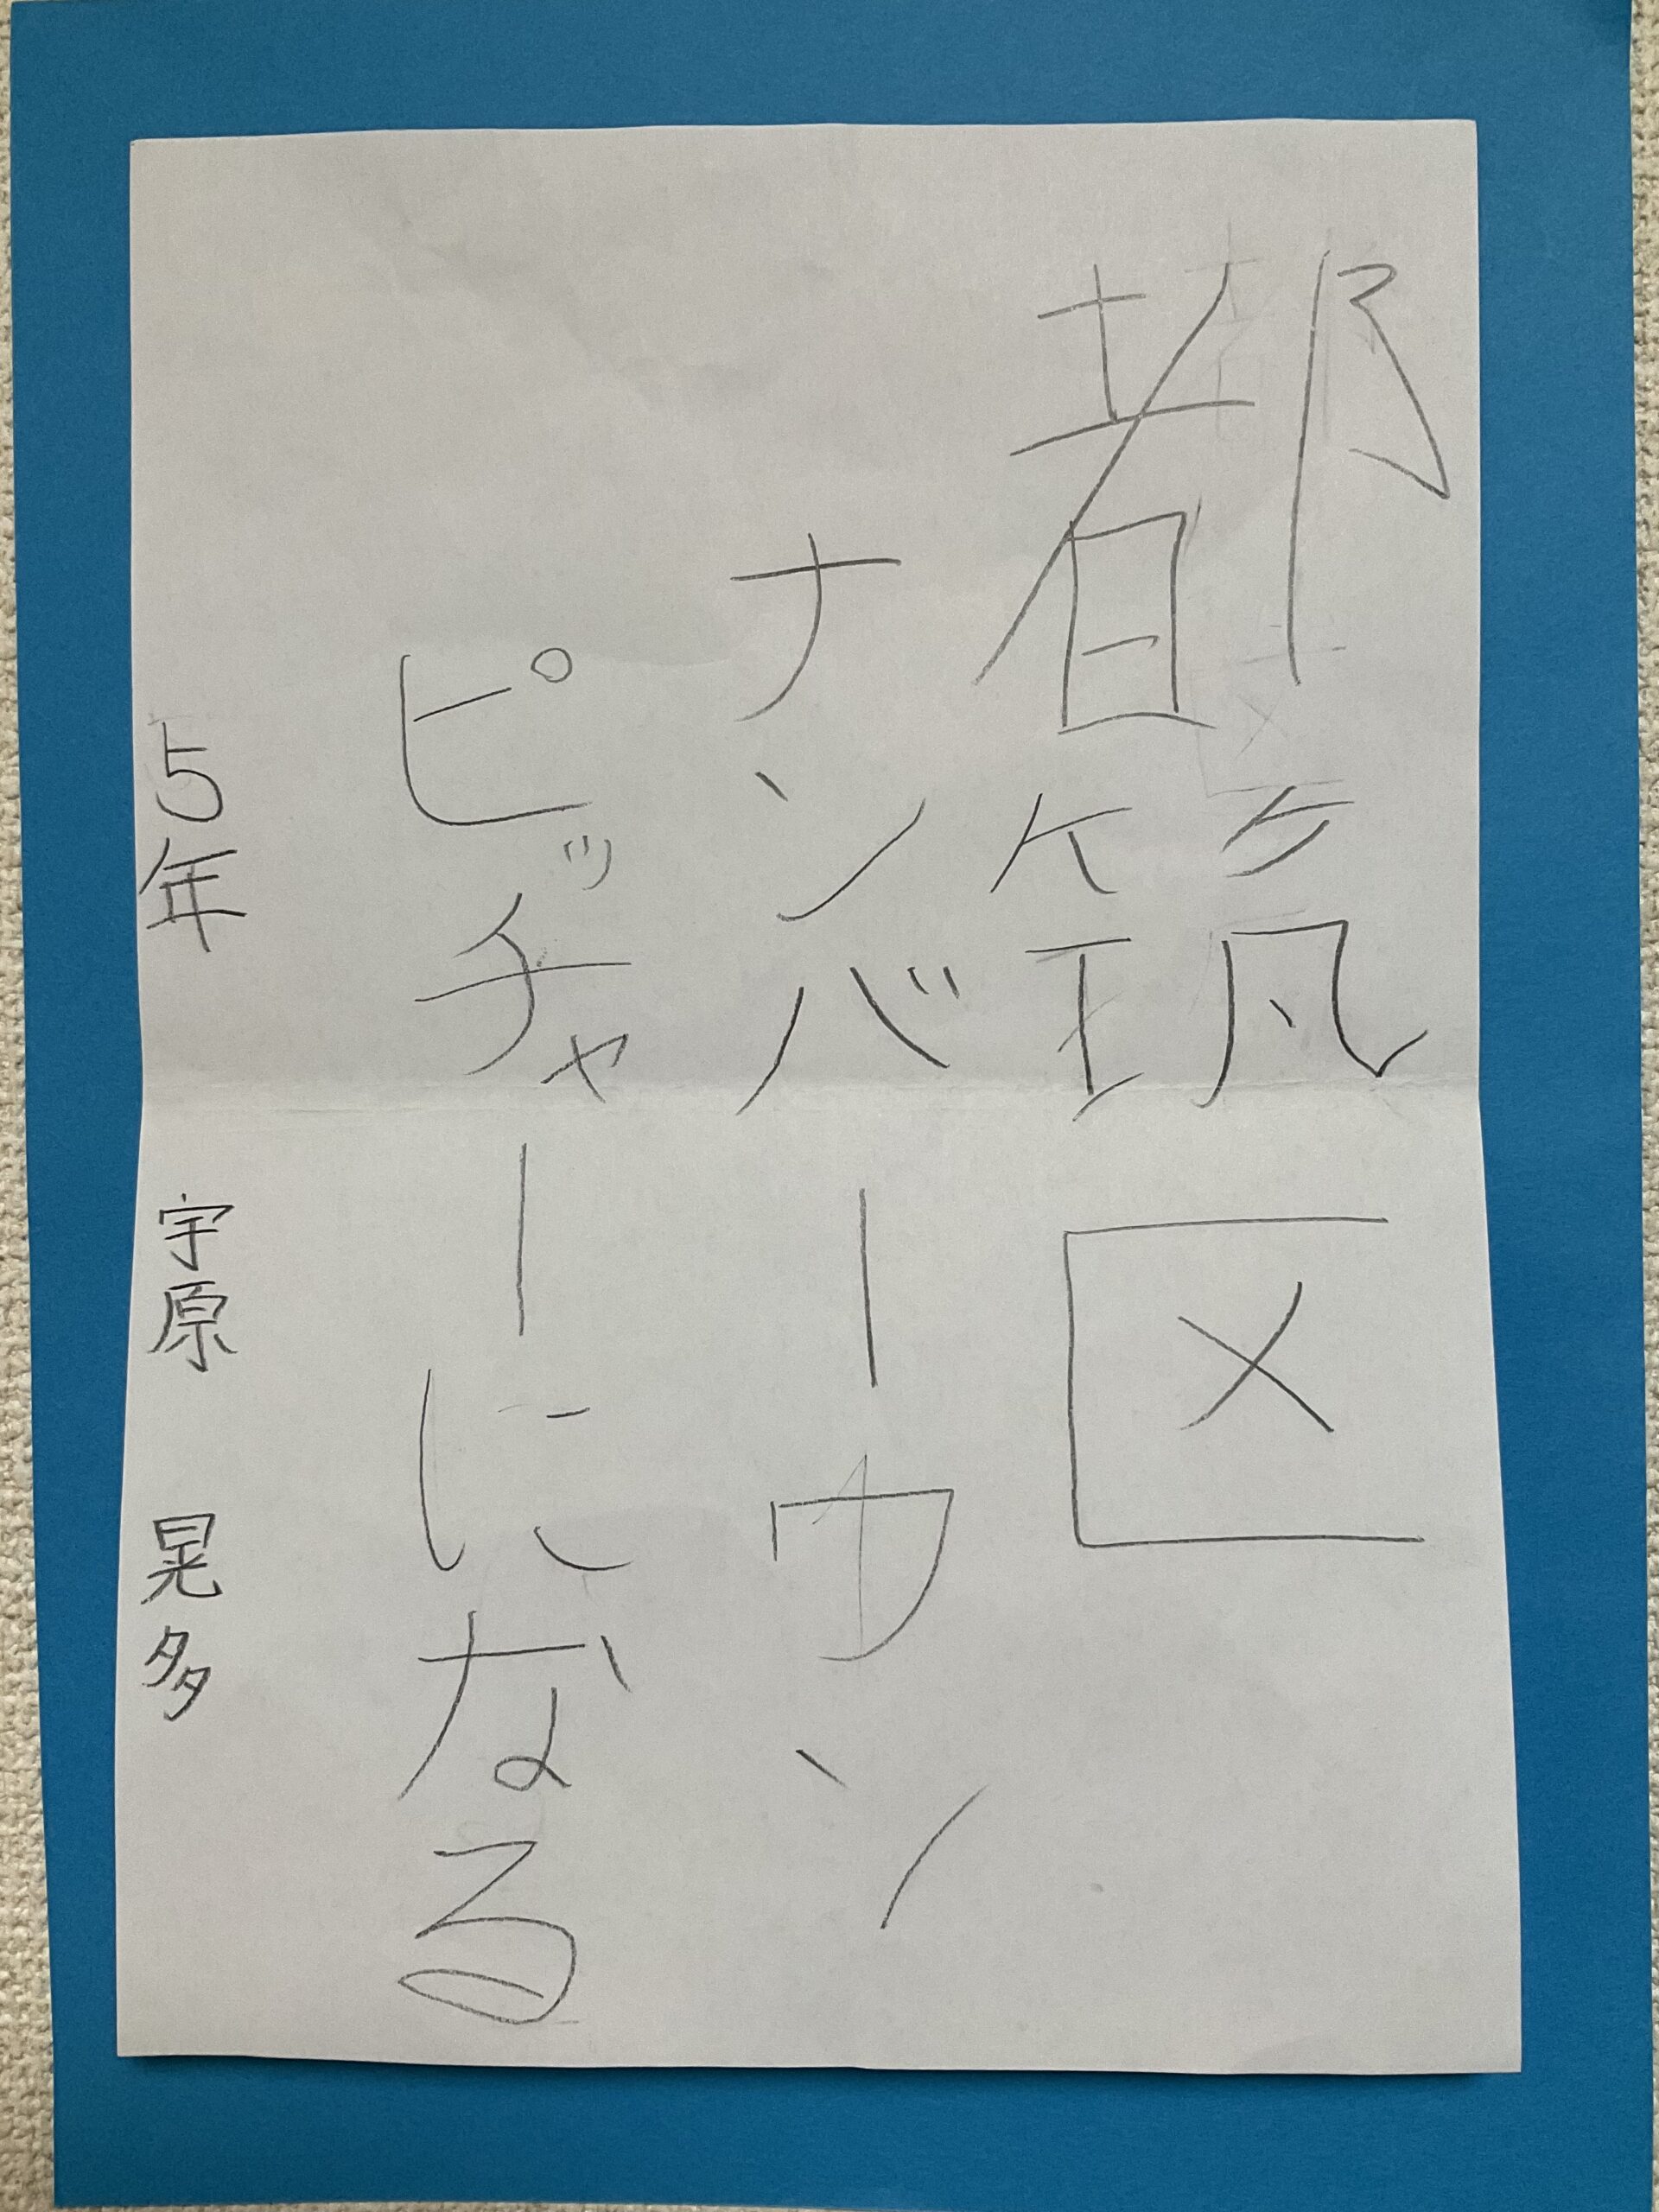 都筑区
ナンバーワン
ピッチャーになる
5年 宇原 晃多